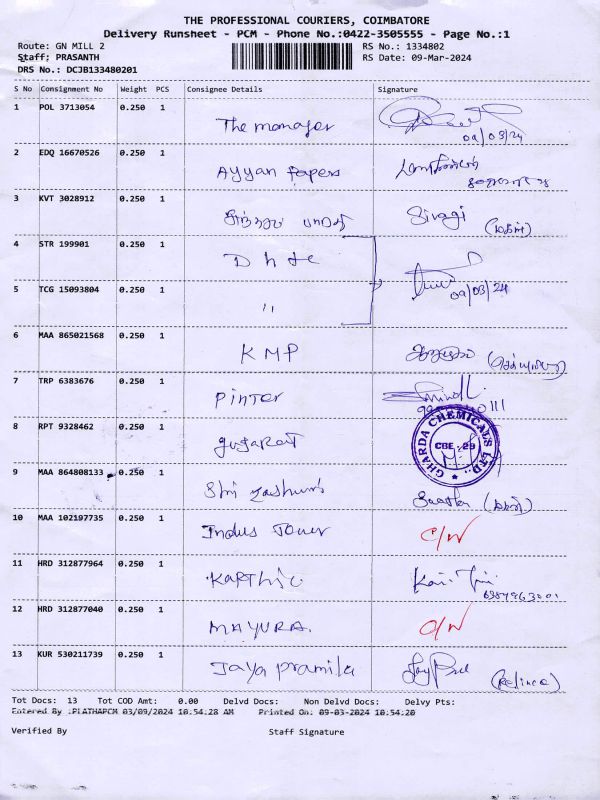 THE PROFESSIONAL COURIERS, COIMBATORE
Delivery Runsheet - PCM - Phone No.:0422-3505555 - Page No.:1
Route: GN MILL 2 RS No.: 1334802
Staff: PRASANTH RS Date: 09-Mar-2024
DRS No.: DCJB133480201
S No Consignment No Weight PCS Consignee Details Signature
1 POL 3713054 0.250 1 The manager
09/03/24
2 EDQ 16670526 0.250 1 Ayyan Papers
3 KVT 3028912 0.250 1 Sivagi
4 STR 199901 0.250 1
5 TCG 15093804 0.250 1 " 09/03/24
6 MAA 865021568 0.250 1 KMP
7 TRP 6383676 0.250 1 Pinter
8 RPT 9328462 0.250 1 gujarat GHARDA CHEMICALS LTD. CBE-29
9 MAA 864808133 0.250 1 Shri
10 MAA 102197735 0.250 1 Indus Tower
11 HRD 312877964 0.250 1 Karthic
12 HRD 312877040 0.250 1 MAYURA.
13 KUR 530211739 0.250 1 Jaya pramila
Tot Docs: 13 Tot COD Amt: 0.00 Delvd Docs: Non Delvd Docs: Delvy Pts:
Entered By :PLATHAPCM 03/09/2024 10:54:28 AM Printed On: 09-03-2024 10:54:20
Verified By Staff Signature